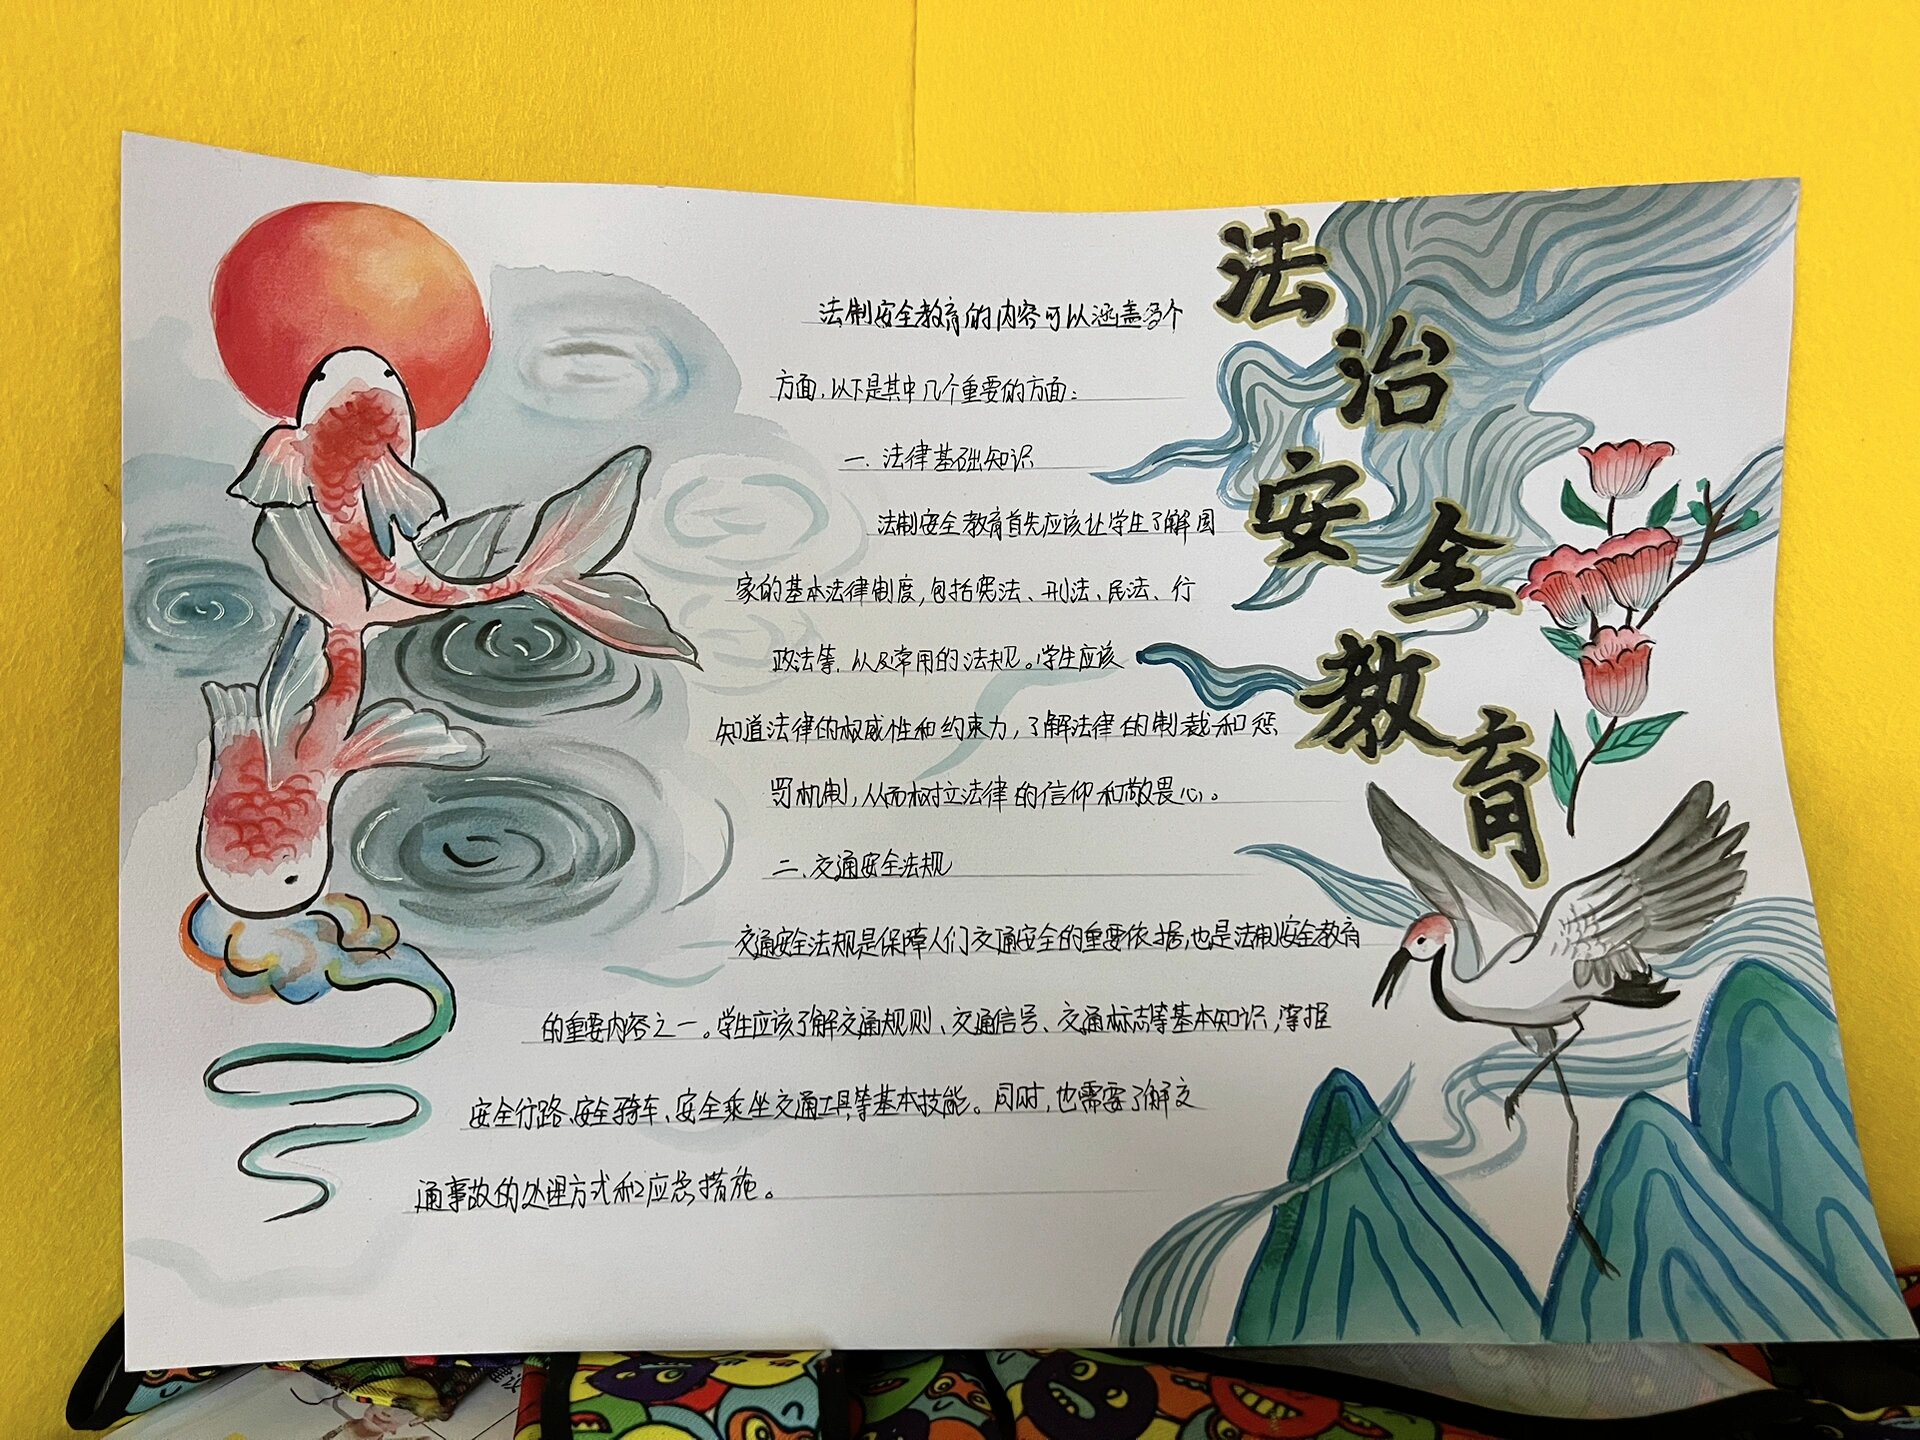 法治安全教育
法制安全教育的内容可以涵盖多个
方面,以下是其中几个重要的方面:
一. 法律基础知识
法制安全教育首先应该让学生了解国
家的基本法律制度,包括宪法、刑法、民法、行
政法等,以及常用的法规。学生应该
知道法律的权威性和约束力,了解法律的制裁和惩
罚机制,从而树立法律的信仰和敬畏心。
二、交通安全法规
交通安全法规是保障人们交通安全的重要依据,也是法制安全教育
的重要内容之一。学生应该了解交通规则、交通信号、交通标志等基本知识,掌握
安全行路、安全骑车、安全乘坐交通工具等基本技能。同时,也需要了解交
通事故的处理方式和应急措施。